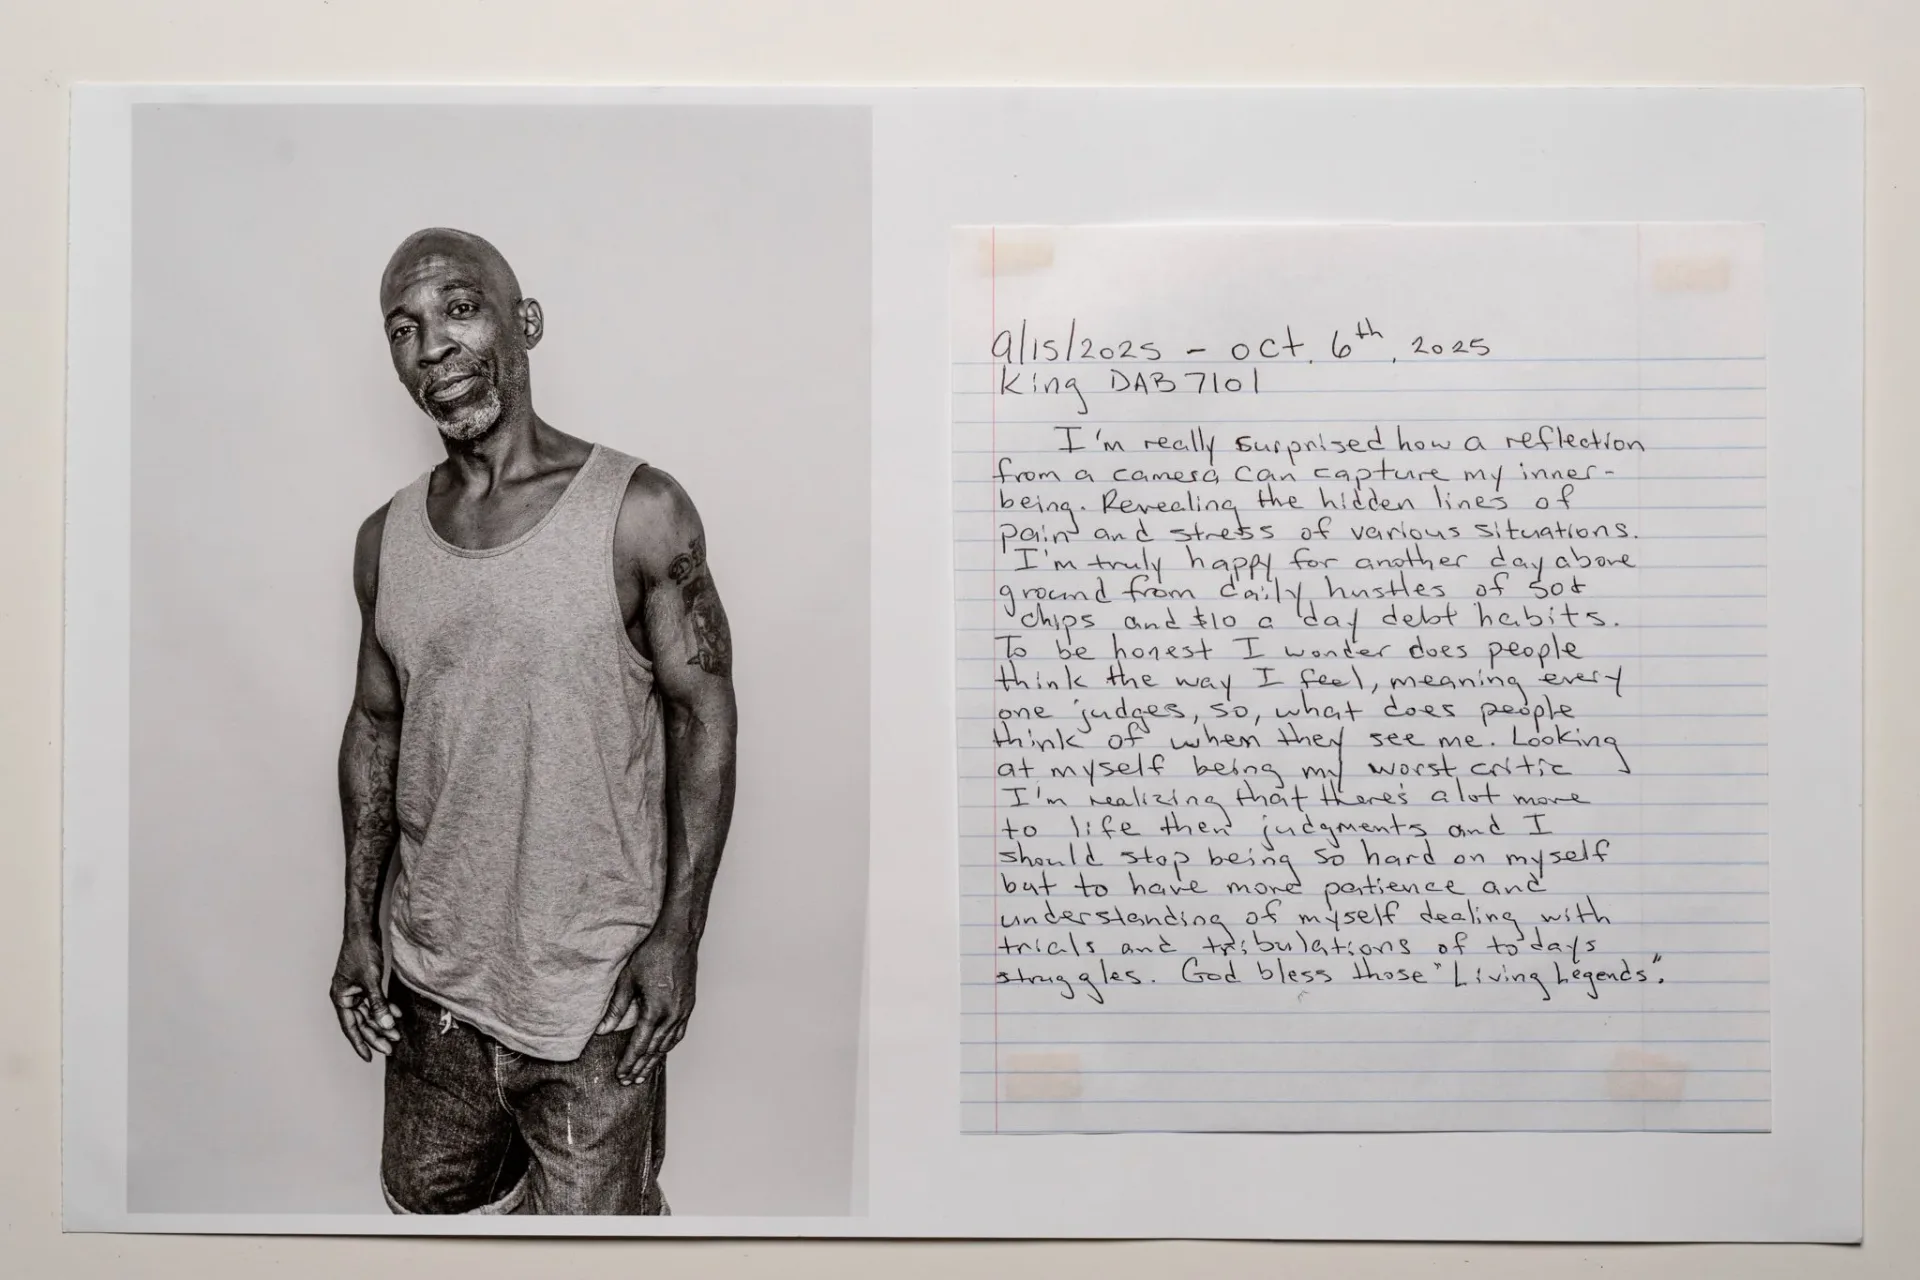 9/15/2025 - oct. 6th, 2025
King DAB7101
I'm really surprised how a reflection
from a camera can capture my inner-
being. Revealing the hidden lines of
pain and stress of various situations.
I'm truly happy for another day above
ground from daily hustles of 50¢
chips and $10 a day debt habits.
To be honest I wonder does people
think the way I feel, meaning every
one judges, so, what does people
think of when they see me. Looking
at myself being my worst critic
I'm realizing that there's alot more
to life then judgments and I
should stop being so hard on myself
but to have more patience and
understanding of myself dealing with
trials and tribulations of to days
struggles. God bless those "Living Legends".